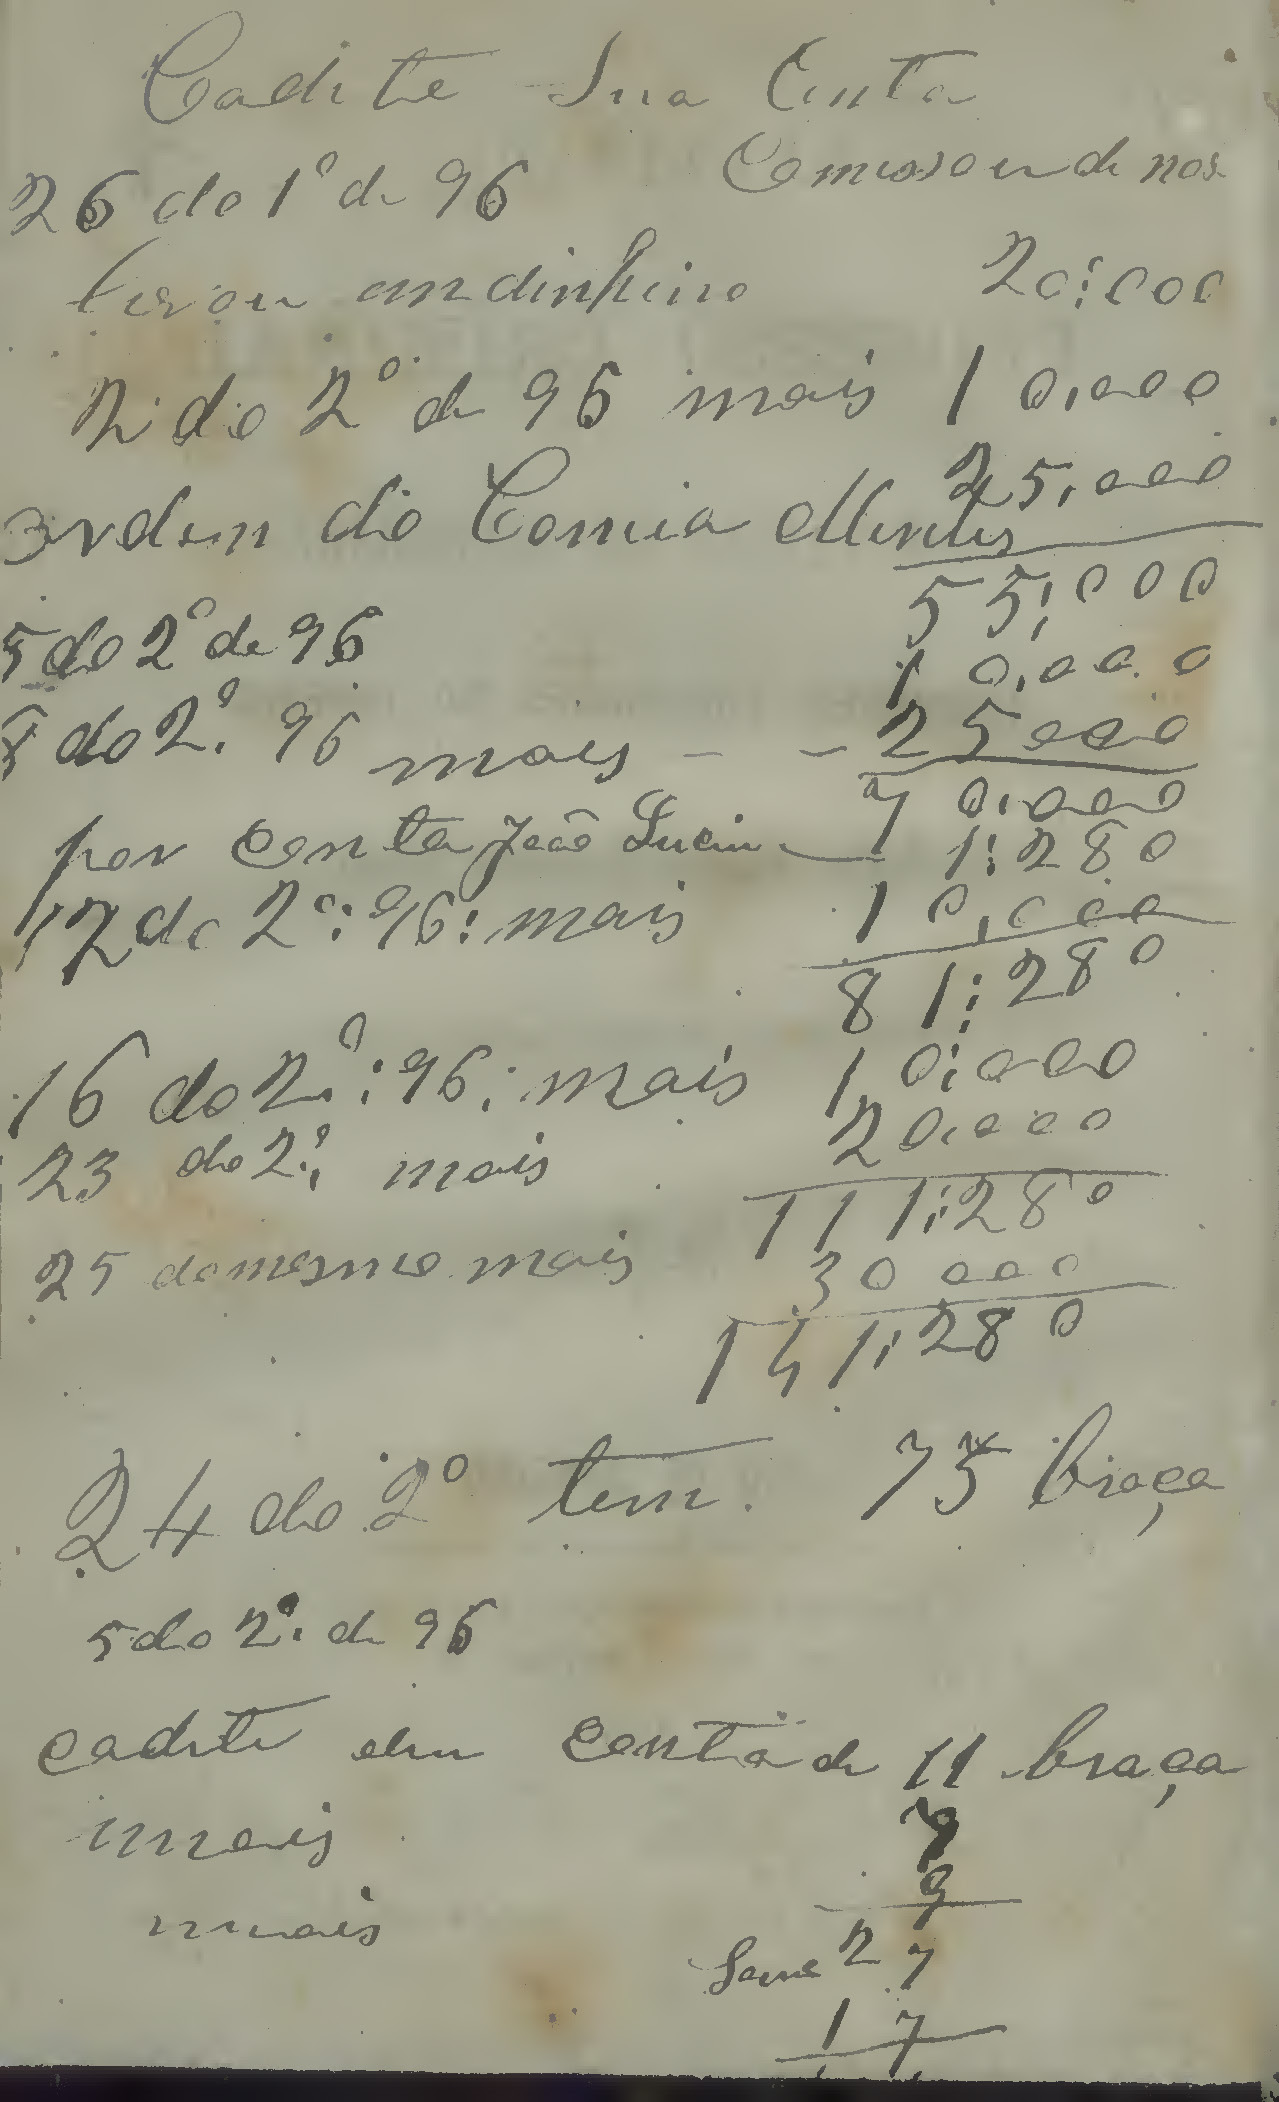 Cadete Sua Conta
26 do 1º de 96
tirou em dinheiro 20:000
2 do 2º de 96 mais 10,000
25,000
ordem do Correia Mendes
55:000
5 do 2º de 96 10,000
8 do 2º. 96 mais - - 25000
70,000
por conta João Lucin 1:280
12 do 2º: 96: mais 10,000
81:280
16 do 2º.: 96: mais 10:000
23 do 2º: mais 20.000
111:280
25 do mesmo mais 30000
141:280
24 do 2º tem. 75 braça
5 do 2º. de 96
cadete deu conta de 11 braça
mais 7
mais 9
Soma 27
17